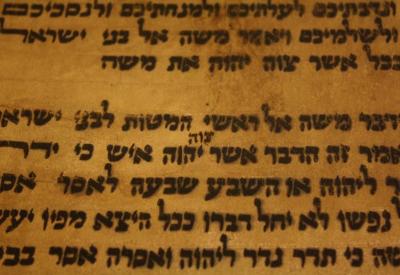 ונדבתיכם לעלתיכם ולמנחתיכם ולנסכיכם
ולשלמיכם ויאמר משה אל בני ישראל
ככל אשר צוה יהוה את משה
משה אל ראשי המטות לבני
צוה
זה הדבר אשר יהוה איש כי ידר
ליהוה או השבע שבעה לאסר
נפשו לא יחל דברו ככל היצא מפיו
כי תדר נדר ליהוה ואסרה אסר